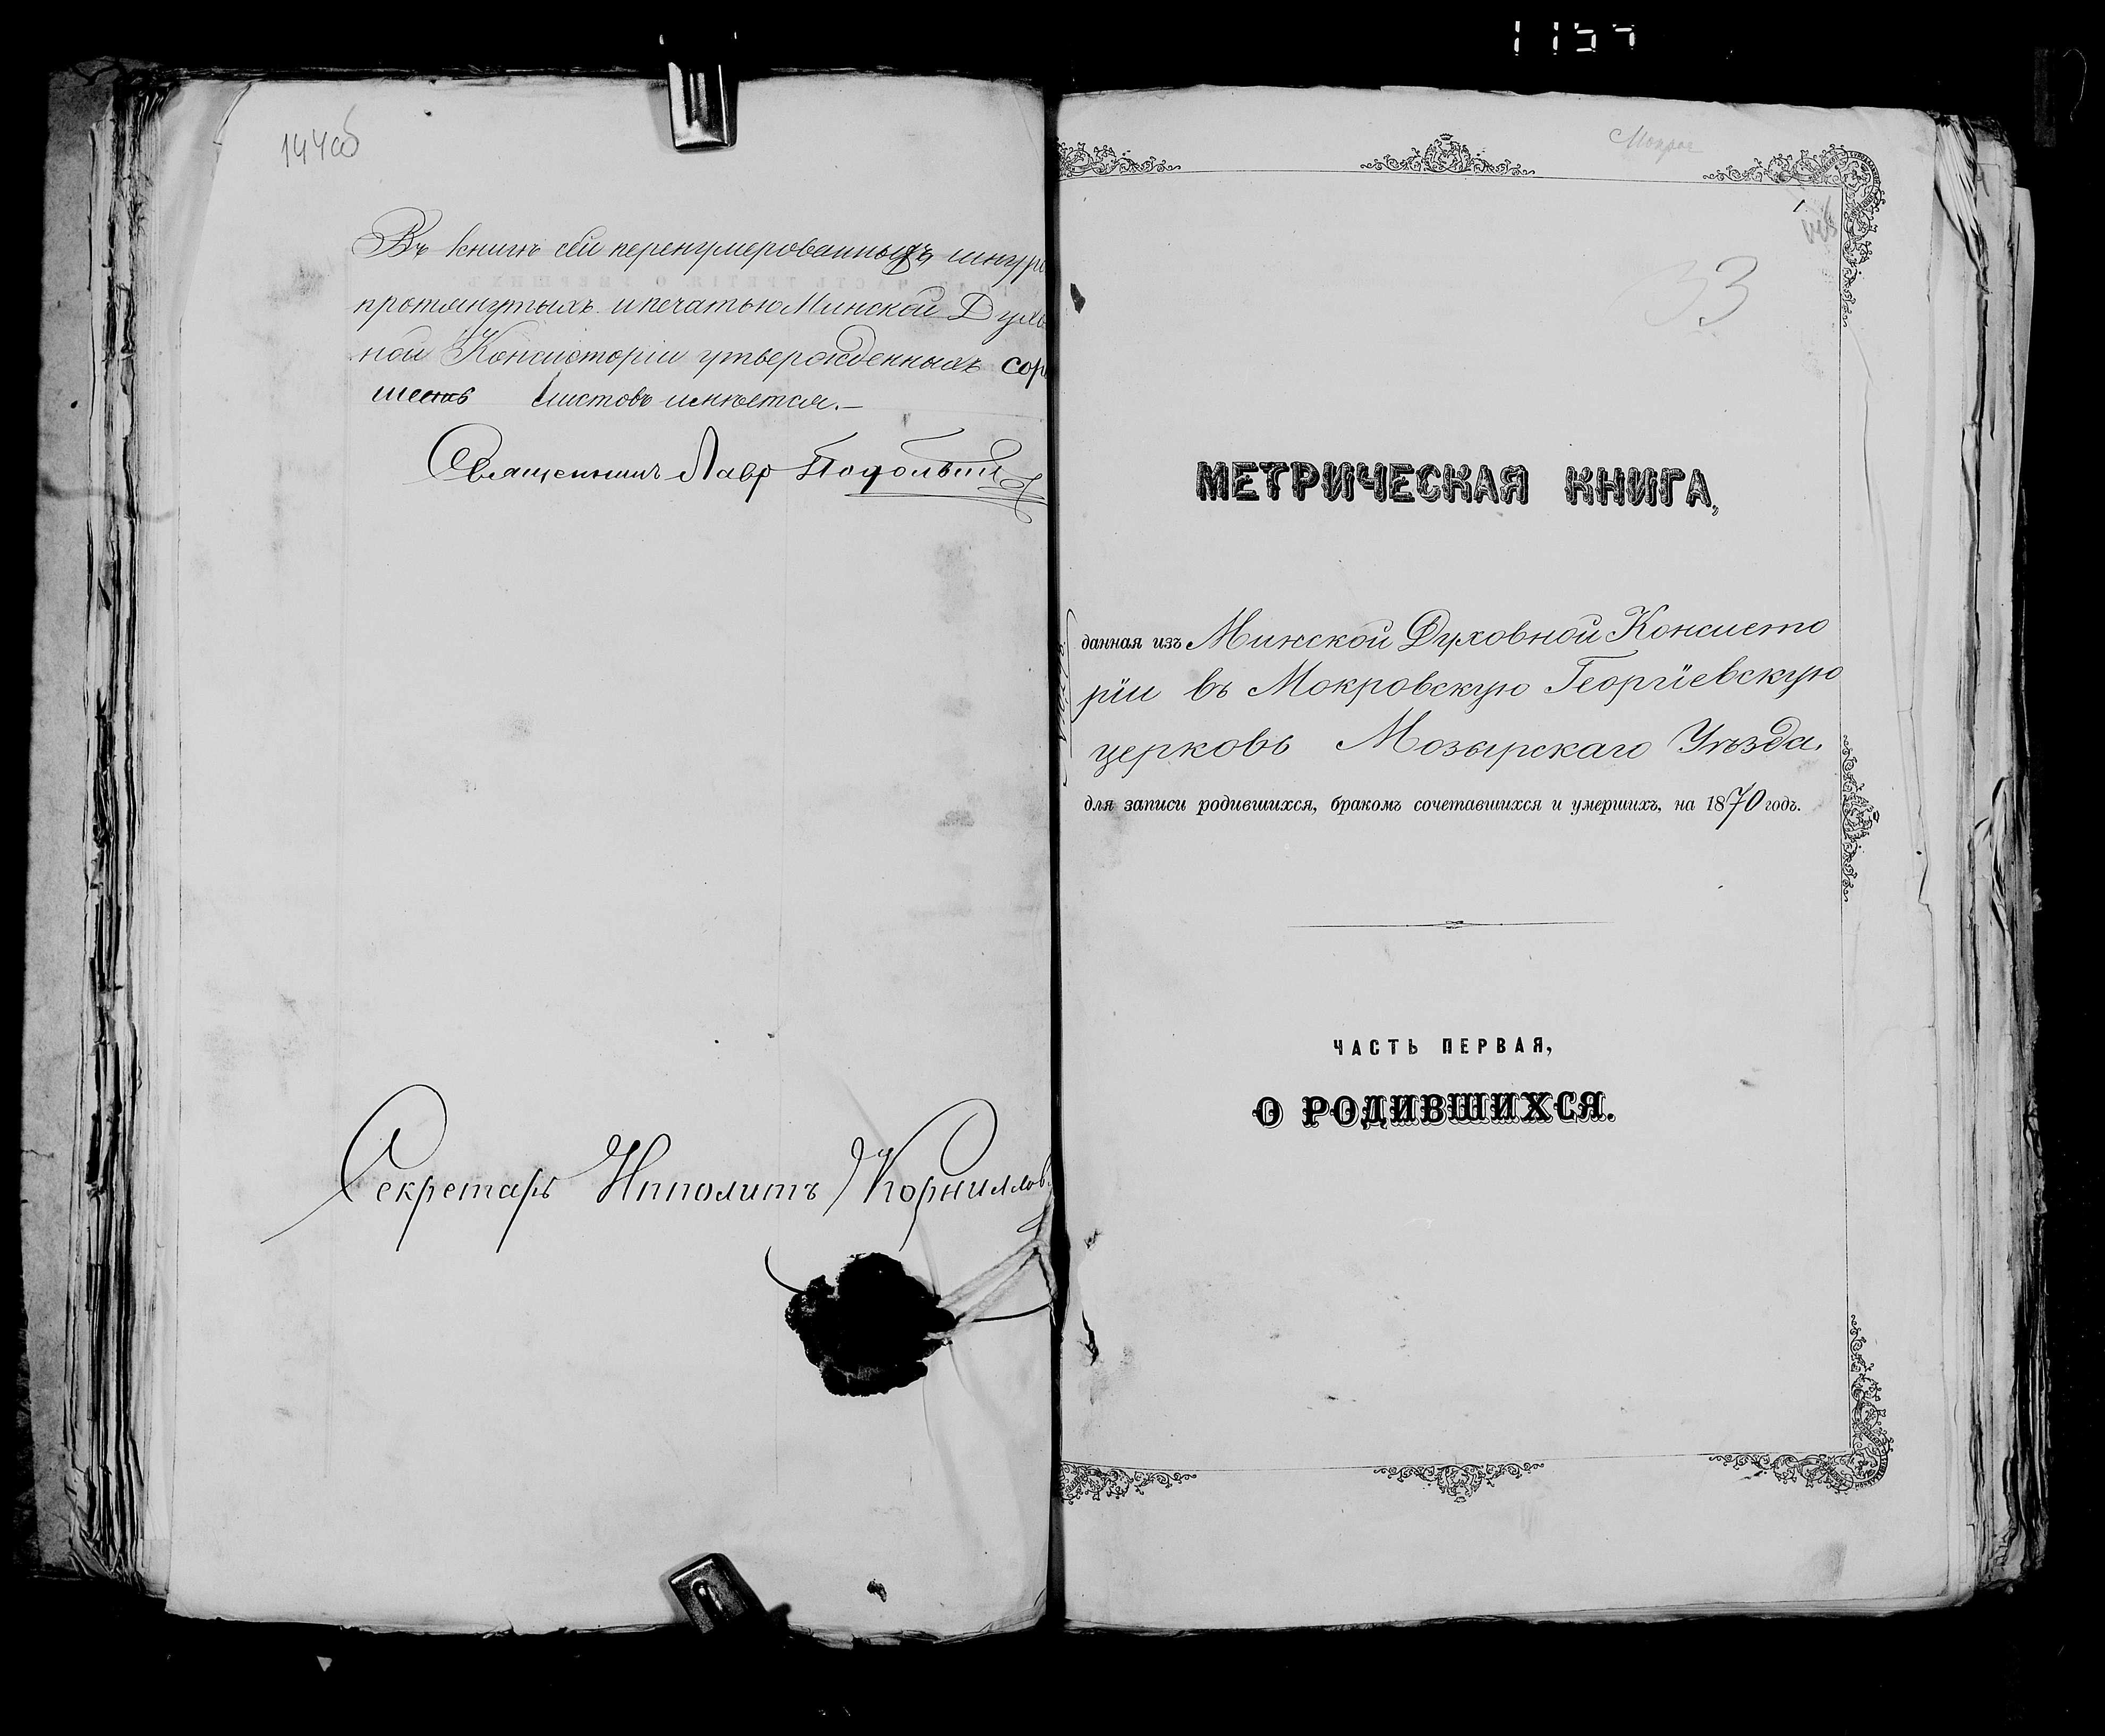 144об
Въ книгѣ сей перенумерованныхъ, шнуро
протянутыхъ и печатью Минской Духо
ной Консисторіи утвержденныхъ сор
шесть листовъ имѣется.—
Священникъ Лавр
Секретарь Ипполитъ Корнилов
Мокров
33
МЕТРИЧЕСКАЯ КНИГА,
данная изъ Минской Духовной Консисто
ріи въ Мокровскую Георгіевскую
церковь Мозырскаго Уѣзда.
для записи родившихся, бракомъ сочетавшихся и умершихъ, на 1870 годъ.
ЧАСТЬ ПЕРВАЯ,
О РОДИВШИХСЯ.